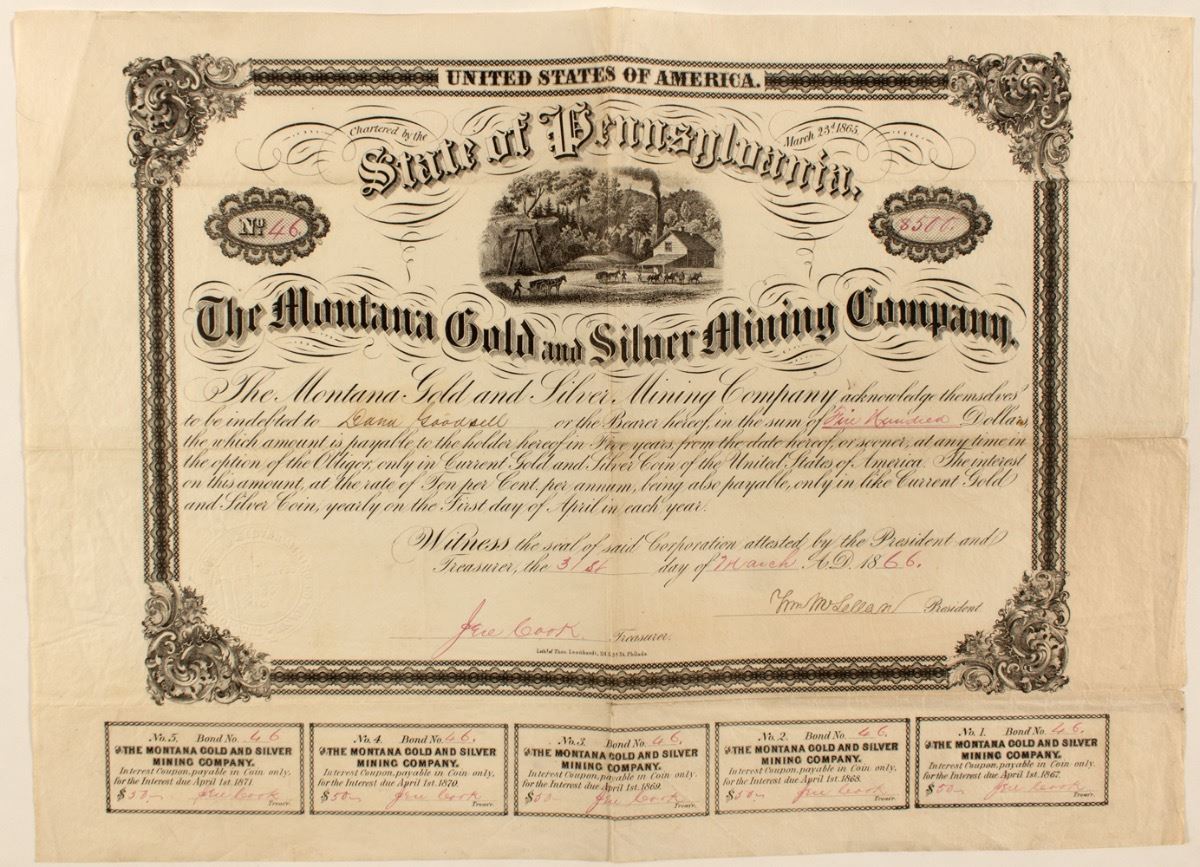 UNITED STATES OF AMERICA.
Chartered by the
March 23d 1865.
State of Pennsylvania.
No. 46.
$500.
The Montana Gold and Silver Mining Company.
The Montana Gold and Silver Mining Company acknowledge themselves
to be indebted to Dana Goodsell or the Bearer hereof, in the sum of Five Hundred Dollars,
the which amount is payable to the holder hereof in Five years, from the date hereof, or sooner, at any time in
the option of the Obligor, only in Current Gold and Silver Coin of the United States of America. The interest
on this amount, at the rate of Ten per Cent. per annum, being also payable, only in like Current Gold
and Silver Coin, yearly on the First day of April in each year.
Witness the seal of said Corporation attested by the President and
Treasurer, the 31st day of March A.D. 1866.
Wm McLellan President
Jere Cook Treasurer.
Lith. of Theo. Leonhardt, Philada.
No. 5. Bond No. 46
THE MONTANA GOLD AND SILVER
MINING COMPANY.
Interest Coupon, payable in Coin only,
for the Interest due April 1st. 1871.
$50- Jere Cook
Treasr.
No. 4. Bond No. 46.
THE MONTANA GOLD AND SILVER
MINING COMPANY.
Interest Coupon, payable in Coin only,
for the Interest due April 1st. 1870.
$50- Jere Cook
Treasr.
No. 3. Bond No. 46.
THE MONTANA GOLD AND SILVER
MINING COMPANY.
Interest Coupon, payable in Coin only,
for the Interest due April 1st. 1869.
$50- Jere Cook
Treasr.
No. 2. Bond No. 46.
THE MONTANA GOLD AND SILVER
MINING COMPANY.
Interest Coupon, payable in Coin only,
for the Interest due April 1st. 1868.
$50- Jere Cook
Treasr.
No. 1. Bond No. 46.
THE MONTANA GOLD AND SILVER
MINING COMPANY.
Interest Coupon, payable in Coin only,
for the Interest due April 1st. 1867.
$50- Jere Cook
Treasr.